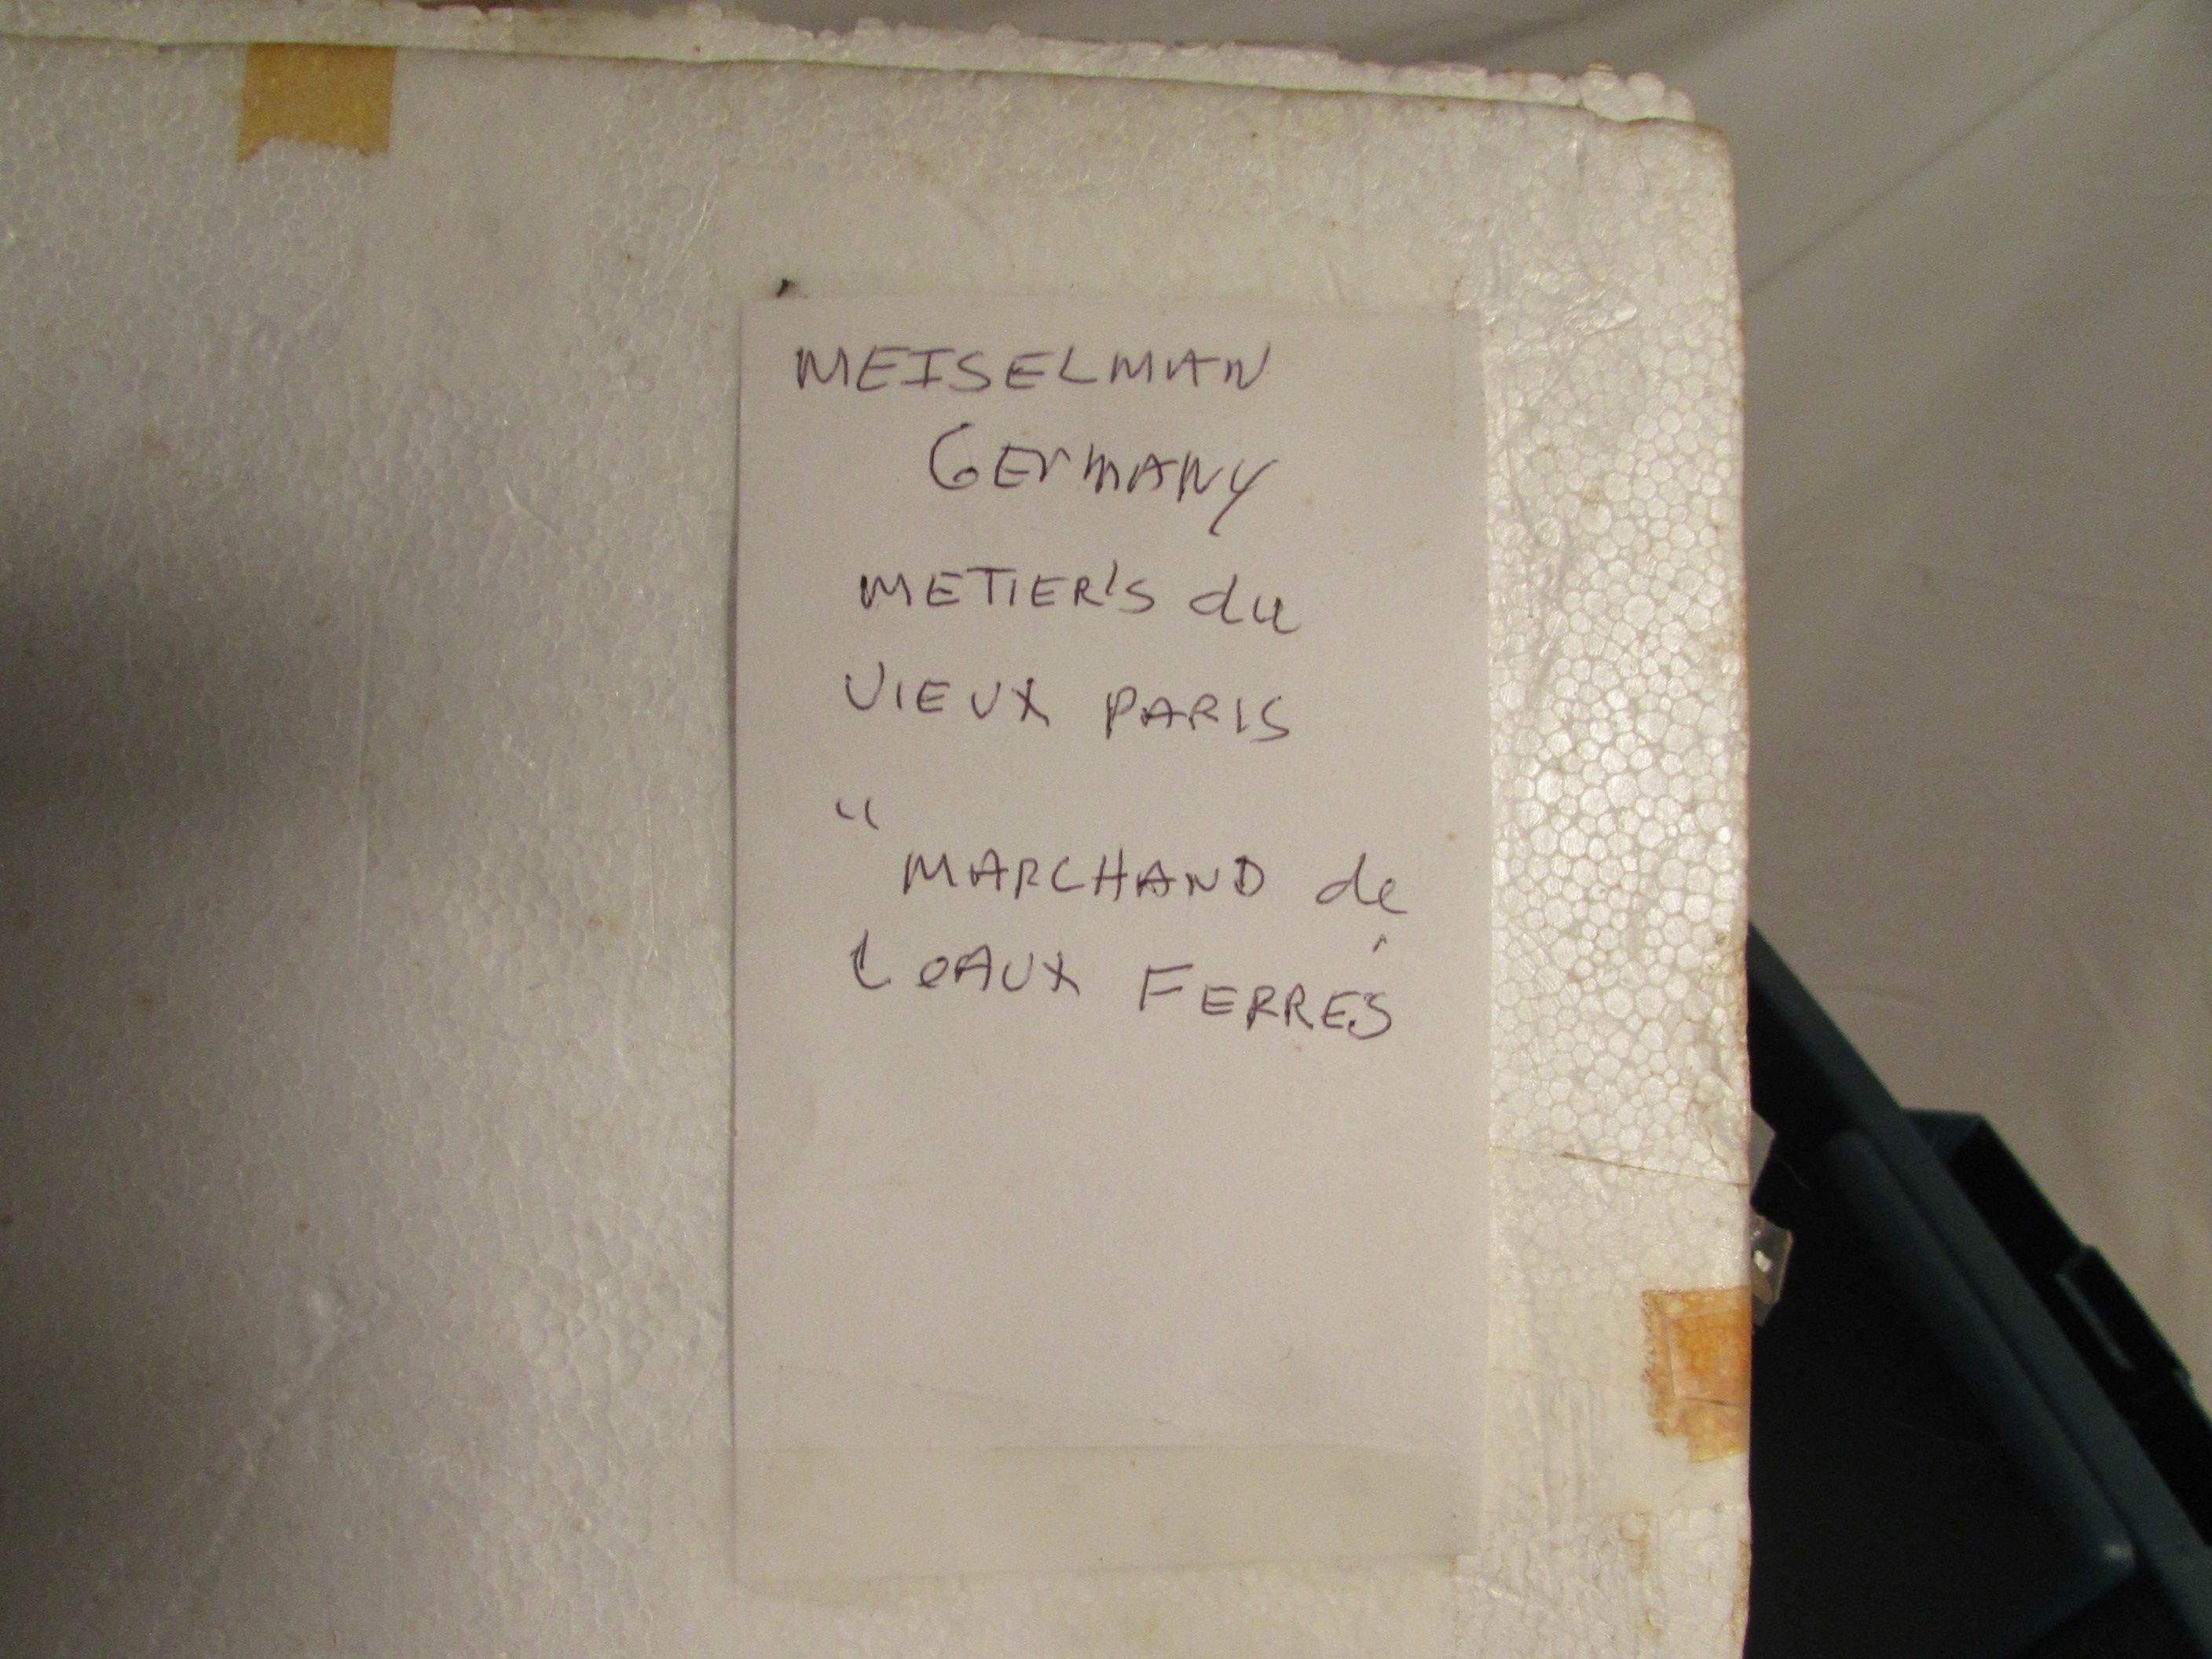 MEISELMAN
GERMANY
METIER'S du
VIEUX PARIS
"
MARCHAND de
LeAUX FERRÉS